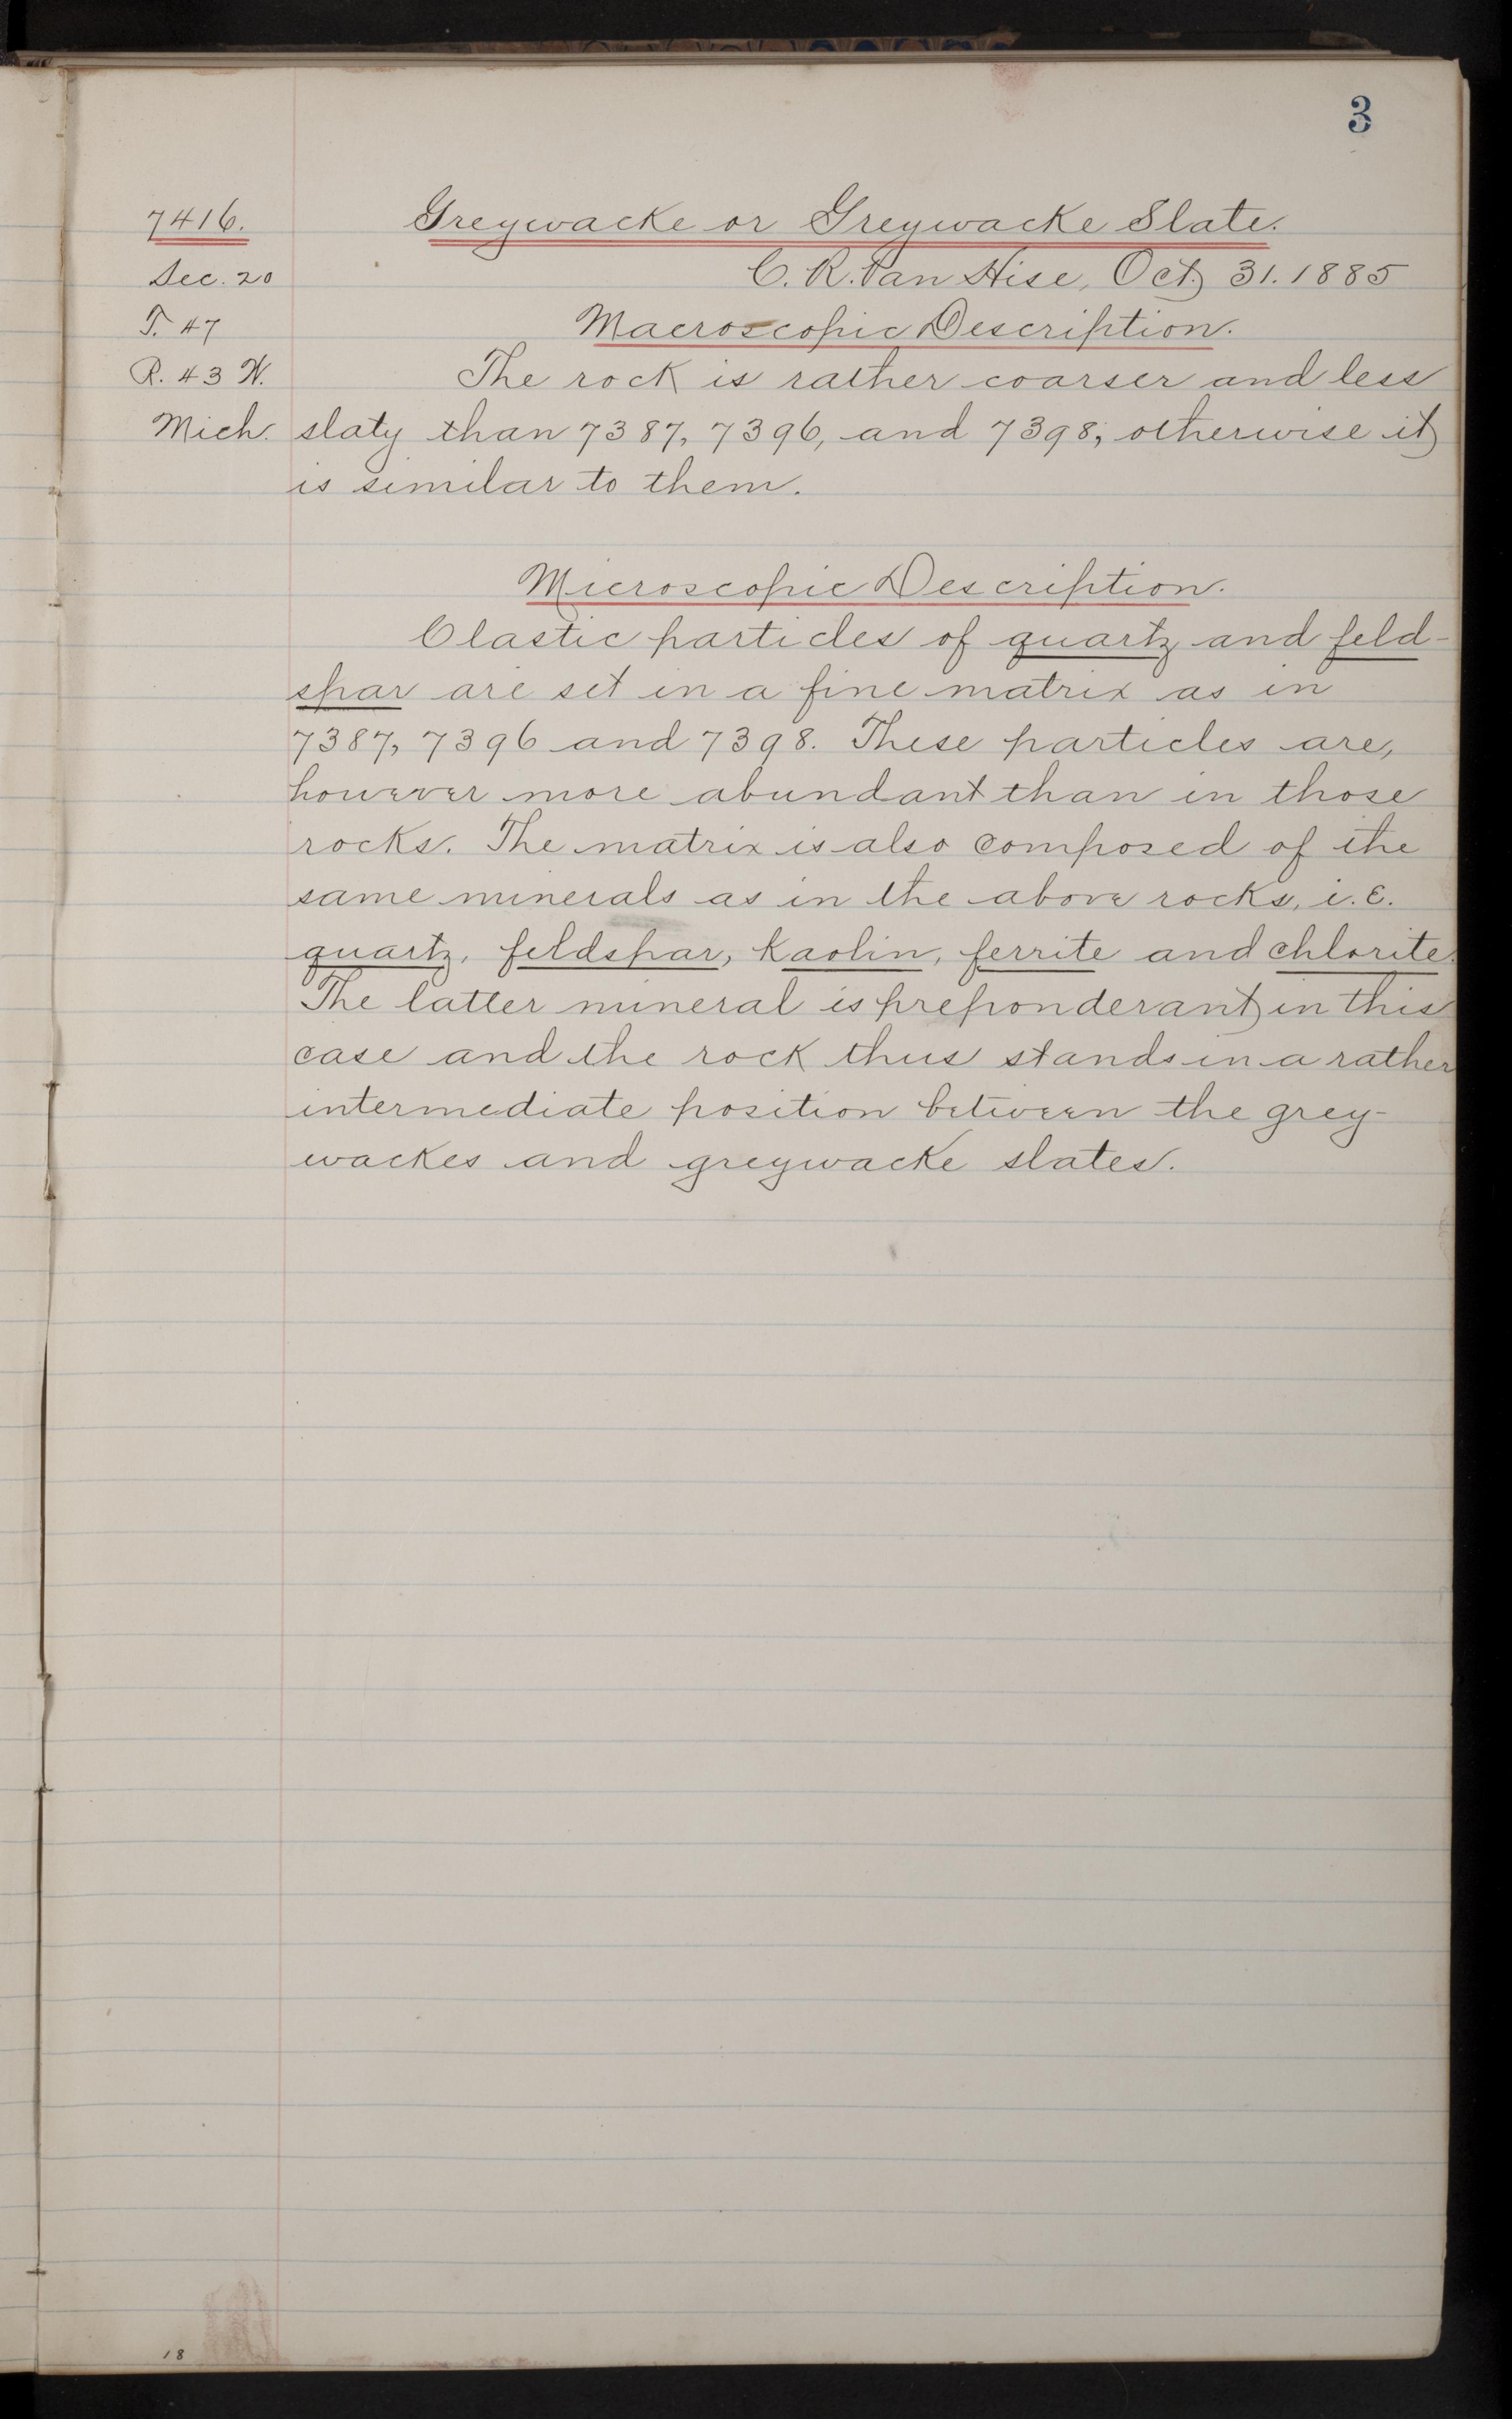 3
7416. Greywacke or Greywacke Slate.
Sec. 20 C. R. Van Hise, Oct. 31. 1885
T. 47 Macroscopic Description.
R. 43 W. The rock is rather coarser and less
Mich. slaty than 7387, 7396, and 7398; otherwise it
is similar to them.
Microscopic Description.
Clastic particles of quartz and feld-
spar are set in a fine matrix as in
7387, 7396 and 7398. These particles are,
however more abundant than in those
rocks. The matrix is also composed of the
same minerals as in the above rocks, i.e.
quartz, feldspar, kaolin, ferrite and chlorite.
The latter mineral is preponderant in this
case and the rock thus stands in a rather
intermediate position between the grey-
wackes and greywacke slates.
18